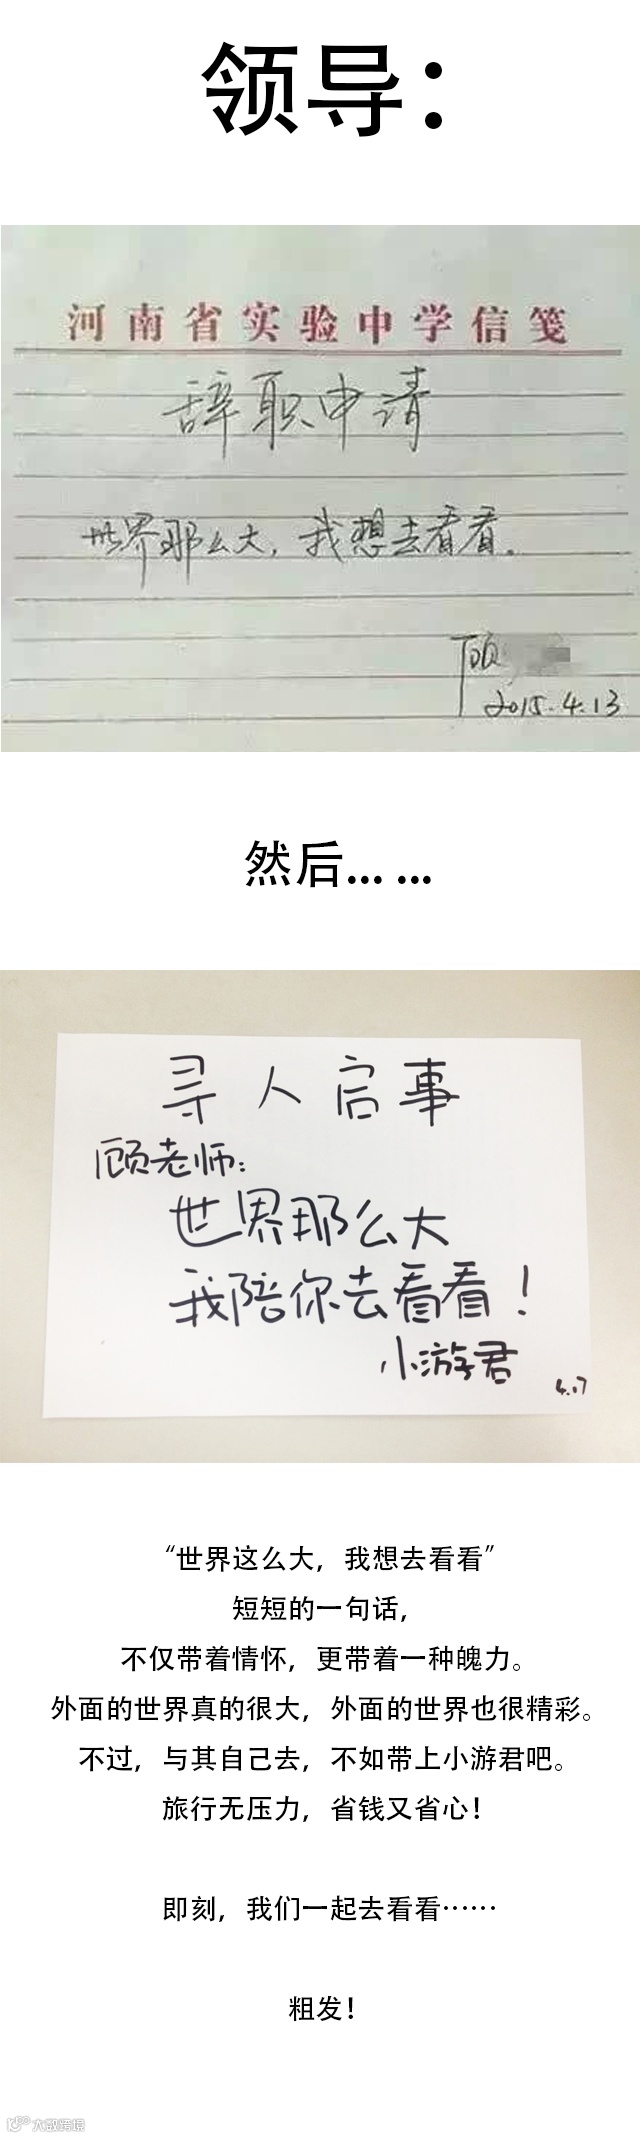 领导：
河南省实验中学信笺
辞职申请
世界那么大，我想去看看。
顾
2015.4.13
然后... ...
寻人启事
顾老师：
世界那么大
我陪你去看看！
小游君
4.17
“世界这么大，我想去看看”
短短的一句话，
不仅带着情怀，更带着一种魄力。
外面的世界真的很大，外面的世界也很精彩。
不过，与其自己去，不如带上小游君吧。
旅行无压力，省钱又省心！
即刻，我们一起去看看……
粗发！
大数跨境